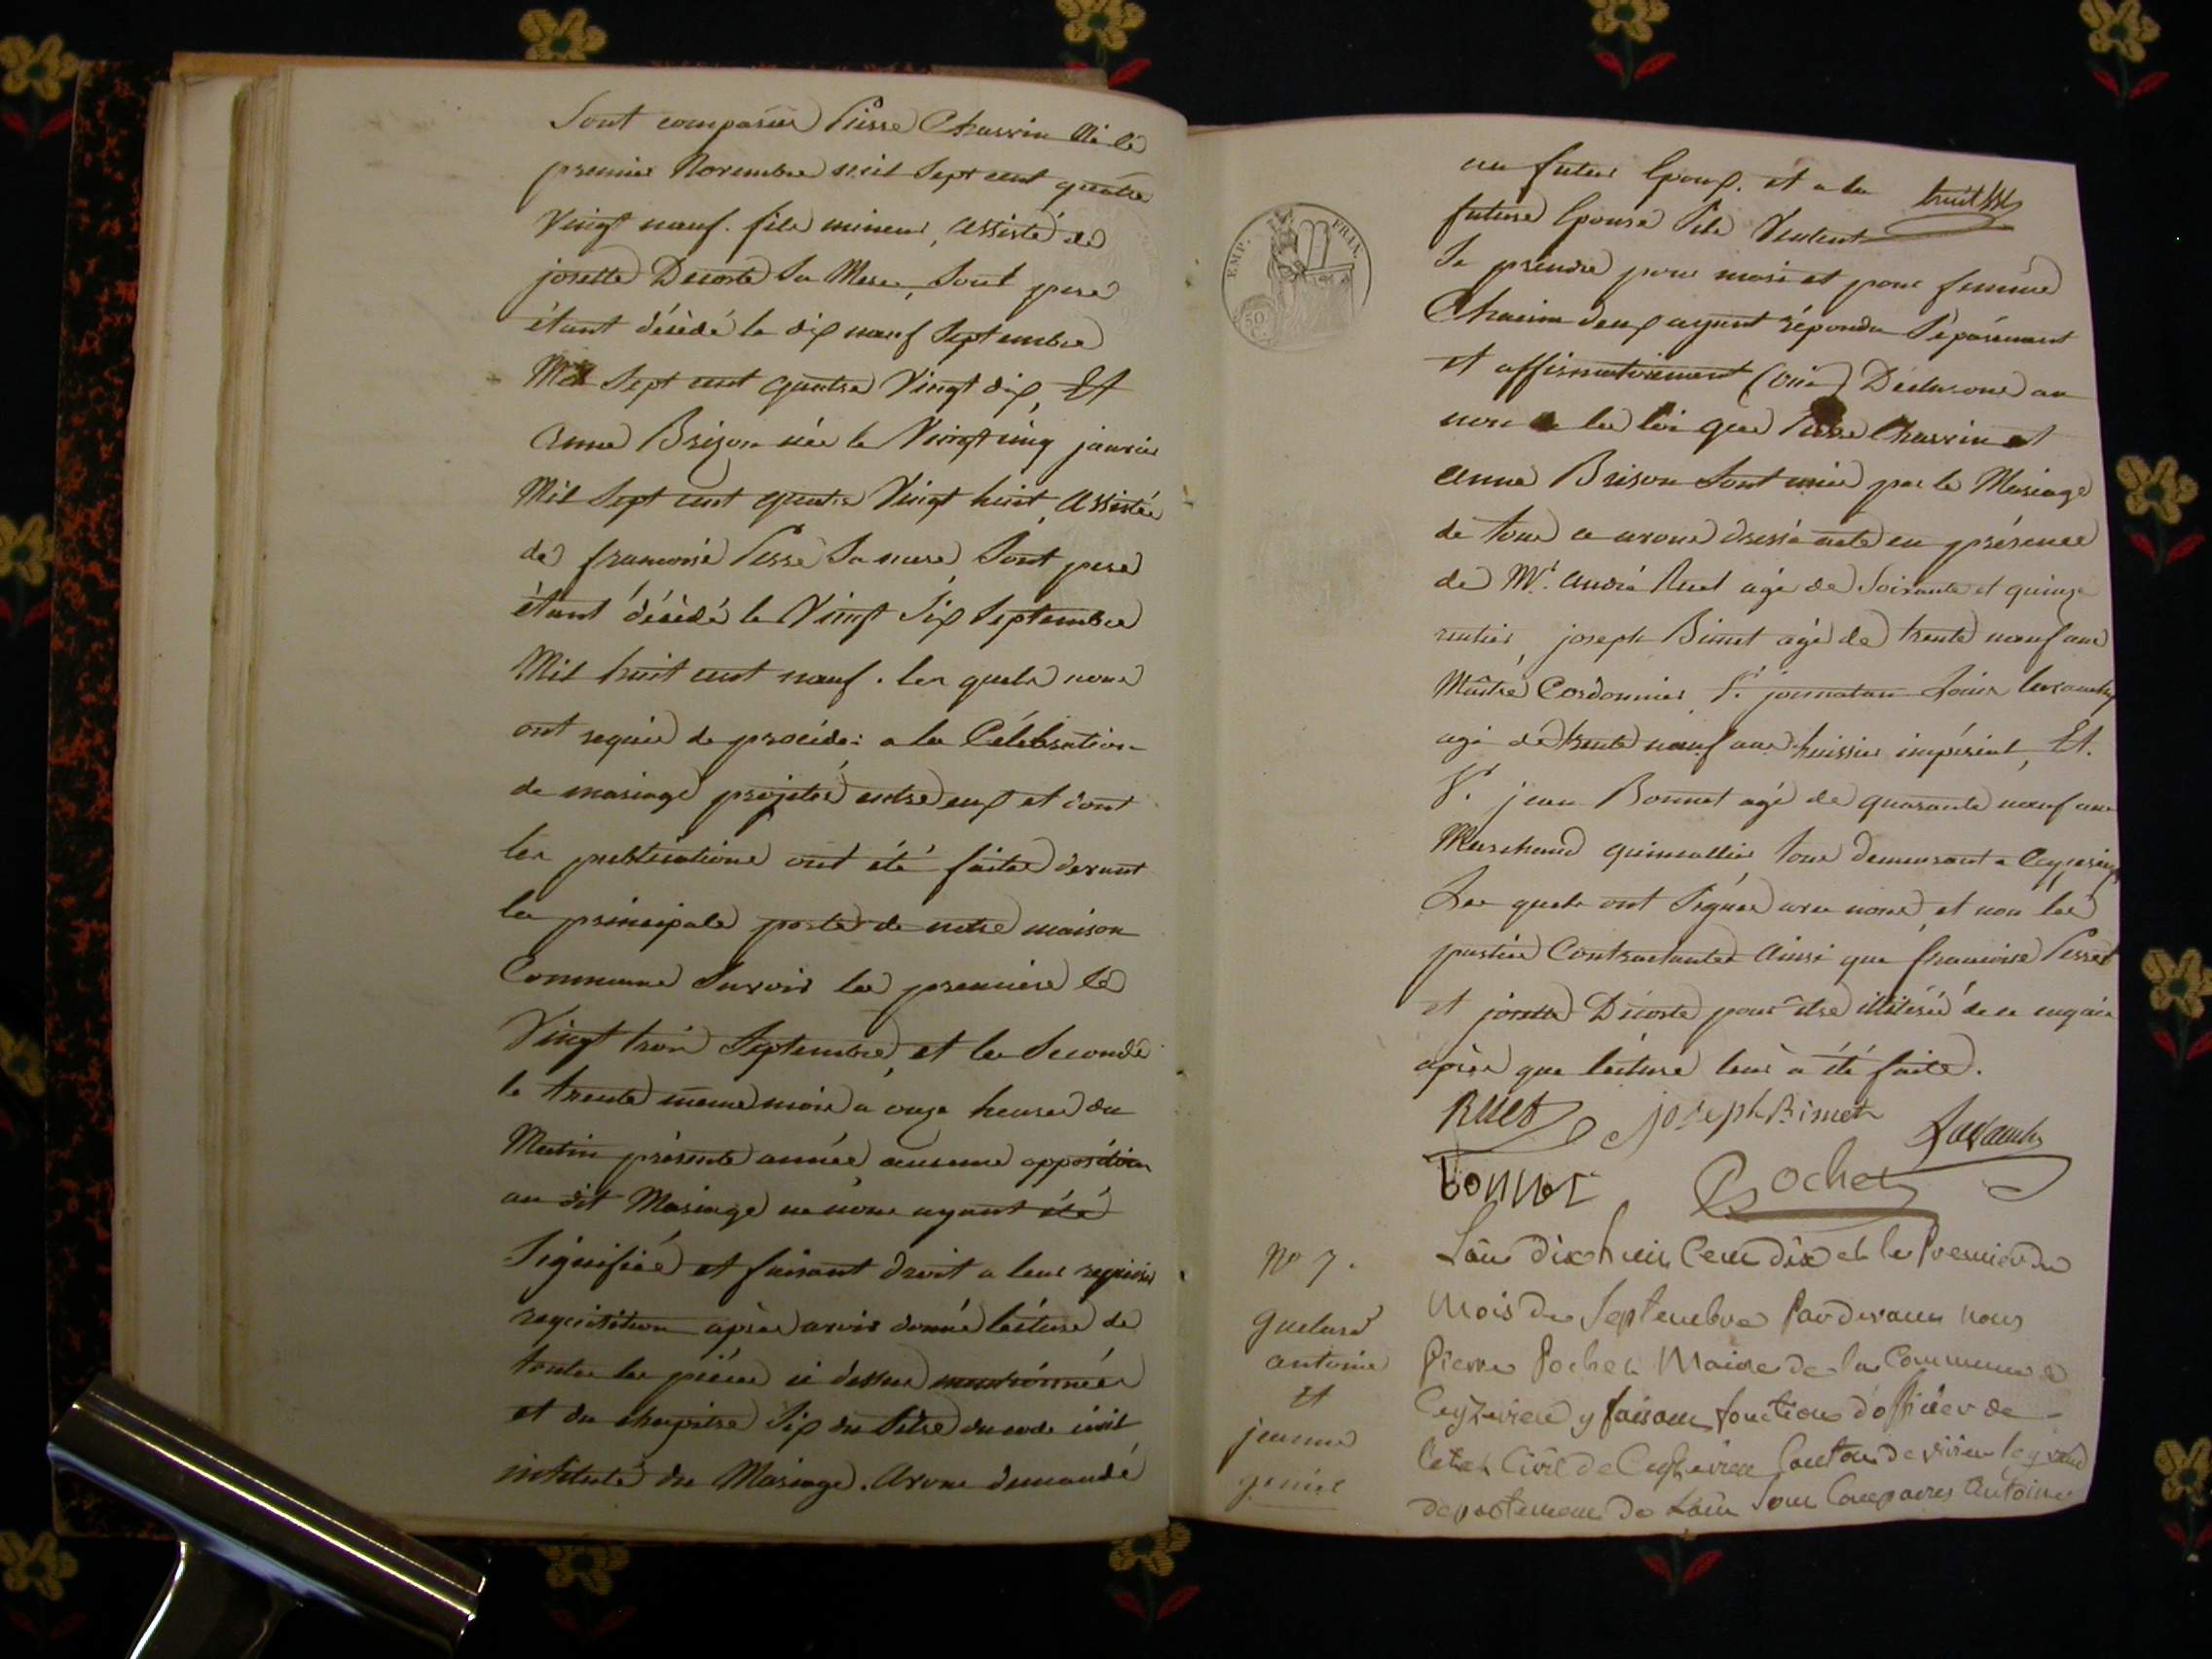 Sont comparus Pierre Charvin Né le
premier Novembre mil Sept cent quatre
Vingt neuf. fils mineur, assisté de
josette Decoste Sa Mere, Sont pere
étant décèdé le dix neuf Septembre
Mil Sept cent quatre Vingt dix, Et
anne Brison née le Vingt cinq janvier
Mil Sept cent quatre Vingt huit, assistée
de francoise Perret Sa mere, Sont pere
étant décèdé le Vingt Six Septembre
Mil huit cent neuf. les quels nous
ont requis de procéder a la Célébration
de mariage projetée entre eux et dont
les publications ont été faites devant
la principale porte de notre maison
Commune Savoir la premiere le
Vingt trois Septembre, et la Seconde
le trente même mois a onze heures du
Matin présente année aucune opposition
au dit Mariage ne nous ayant été
Signifiée et faisant droit a leur
requisition après avoir donné lécture de
toutes les pièces ci dessus mentionnées
et du chapitre Six du titre du code civil
intitulé du Mariage. Avons demandé
EMP. FRAN.
50
au futur Epoux. et a la
future Epouse S'ils Veulent
Se prendre pour mari et pour femme
Chacun d'eux ayant répondu Séparément
et affirmativement (oui) Déclarons au
nom de la loi que Pierre Charvin et
anne Brison Sont unis par le Mariage
de tous ce avons dressé acte en présence
de Mr. André Ruet agé de Soixante et quinze
rentier, joseph Bimet agé de trente neuf ans
Maître Cordonnier, Sr. jonnatan Louis Lavanchy
agé de trente neuf ans huissier impérial, Et.
Sr. jean Bonnet agé de quarante neuf ans
Marchand quincallier tous demeurant a Ceyzerieu
Les quels ont Signés avec nous et non les
parties Contractantes Ainsi que francoise Perret
et josette Décoste pour être illitérés de ce enquis
après que lécture leur a été faite.
Ruet joseph Bimet Lavanchy
bonnet Pochet
No 7.
antoine
Et
jeanne
Lan dix huit Cent dix et le Premier du
Mois de Septembre Pardevant nous
Pierre Pochet Maire de la Commune de
Ceyzerieu y faisant fonctions d'officier de
Letat Civil de Ceyzerieu Canton de virieu le grand
departement de Lain Sont Comparus Antoine